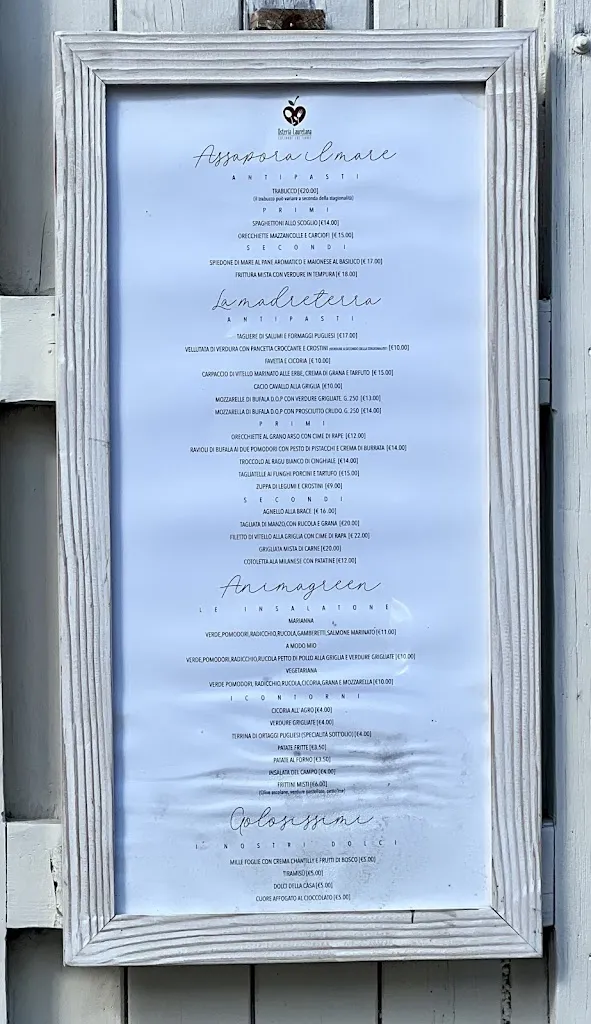 Osteria Lauretana
Assapora il mare
ANTIPASTI
TRABUCCO [€20.00]
(Il trabucco può variare a seconda della stagionalità)
PRIMI
SPAGHETTONI ALLO SCOGLIO [€14.00]
ORECCHIETTE MAZZANCOLLE E CARCIOFI [€ 15.00]
SECONDI
SPIEDONE DI MARE AL PANE AROMATICO E MAIONESE AL BASILICO [€ 17.00]
FRITTURA MISTA CON VERDURE IN TEMPURA [€ 18.00]
La madreterra
ANTIPASTI
TAGLIERE DI SALUMI E FORMAGGI PUGLIESI [€17.00]
VELLUTATA DI VERDURA CON PANCETTA CROCCANTE E CROSTINI [€10.00]
FAVETTA E CICORIA [€ 10.00]
CARPACCIO DI VITELLO MARINATO ALLE ERBE, CREMA DI GRANA E TARFUTO [€ 15.00]
CACIO CAVALLO ALLA GRIGLIA [€10.00]
MOZZARELLE DI BUFALA D.O.P CON VERDURE GRIGLIATE, G. 250 [€13.00]
MOZZARELLA DI BUFALA D.O.P CON PROSCIUTTO CRUDO, G. 250 [€14.00]
PRIMI
ORECCHIETTE AL GRANO ARSO CON CIME DI RAPE [€12.00]
RAVIOLI DI BUFALA AI DUE POMODORI CON PESTO DI PISTACCHI E CREMA DI BURRATA [€14.00]
TROCCOLO AL RAGU BIANCO DI CINGHIALE [€14.00]
TAGLIATELLE AI FUNGHI PORCINI E TARTUFO [€15.00]
ZUPPA DI LEGUMI E CROSTINI [€9.00]
SECONDI
AGNELLO ALLA BRACE [€ 16 .00]
TAGLIATA DI MANZO,CON RUCOLA E GRANA [€20.00]
FILETTO DI VITELLO ALLA GRIGLIA CON CIME DI RAPA [€ 22.00]
GRIGLIATA MISTA DI CARNE [€20.00]
COTOLETTA ALA MILANESE CON PATATINE [€12.00]
Animagreen
LE INSALATONE
MARIANNA
VERDE,POMODORI,RADICCHIO,RUCOLA,GAMBERETTI,SALMONE MARINATO [€11.00]
A MODO MIO
VERDE,POMODORI,RADICCHIO,RUCOLA PETTO DI POLLO ALLA GRIGLIA E VERDURE GRIGLIATE [€10.00]
VEGETARIANA
VERDE POMODORI, RADICCHIO,RUCOLA,CICORIA,GRANA E MOZZARELLA [€10.00]
I CONTORNI
CICORIA ALL' AGRO [€4.00]
VERDURE GRIGLIATE [€4.00]
TERRINA DI ORTAGGI PUGLIESI (SPECIALITÀ SOTT'OLIO) [€4.00]
PATATE FRITTE [€3.50]
PATATE AL FORNO [€3.50]
INSALATA DEL CAMPO [€4.00]
FRITTINI MISTI [€6.00]
(Olive ascolane, verdure pastellate, panzerotti)
Golosissimi
I NOSTRI DOLCI
MILLE FOGLIE CON CREMA CHANTILLY E FRUTTI DI BOSCO [€5.00]
TIRAMISÙ [€5.00]
DOLCI DELLA CASA [€5.00]
CUORE AFFOGATO AL CIOCCOLATO [€5.00]